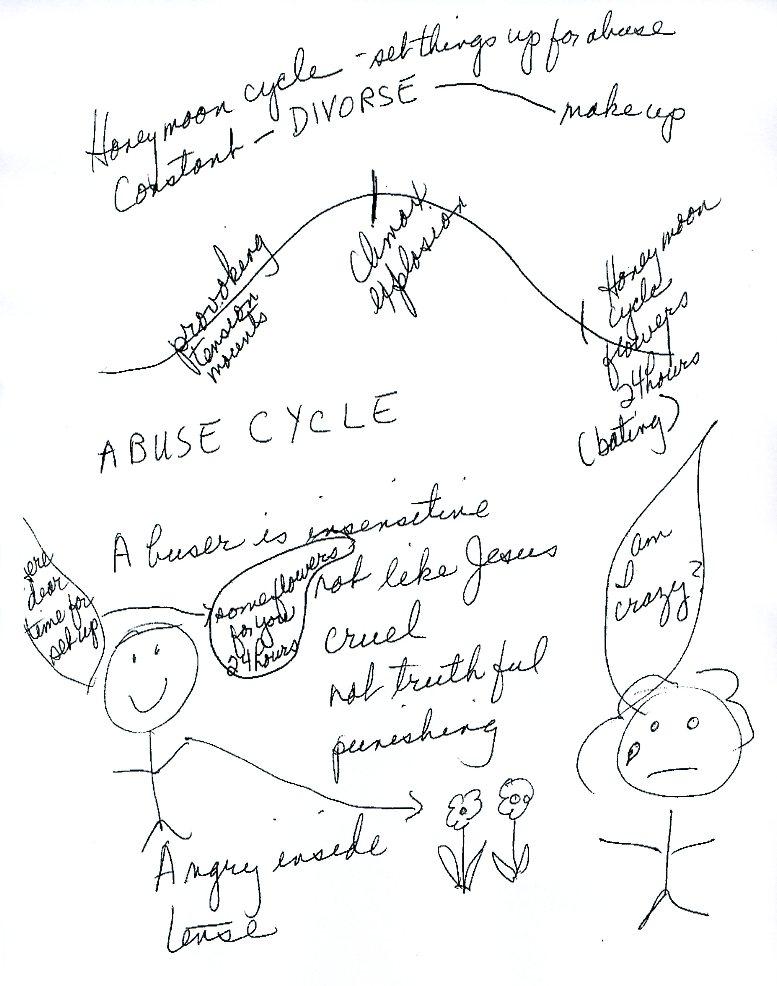 Honeymoon cycle - set things up for abuse
Constant - DIVORSE
make up
provokeng
tension
moments
Climax
explosion
Honeymoon
cycle
flowers
24 hours
(bating)
ABUSE CYCLE
Abuser is insensitive
not like Jesus
cruel
not truthful
punishing
dear
time for
set up
some flowers
for you
24 hours
am
I
crazy?
Angry inside
tense